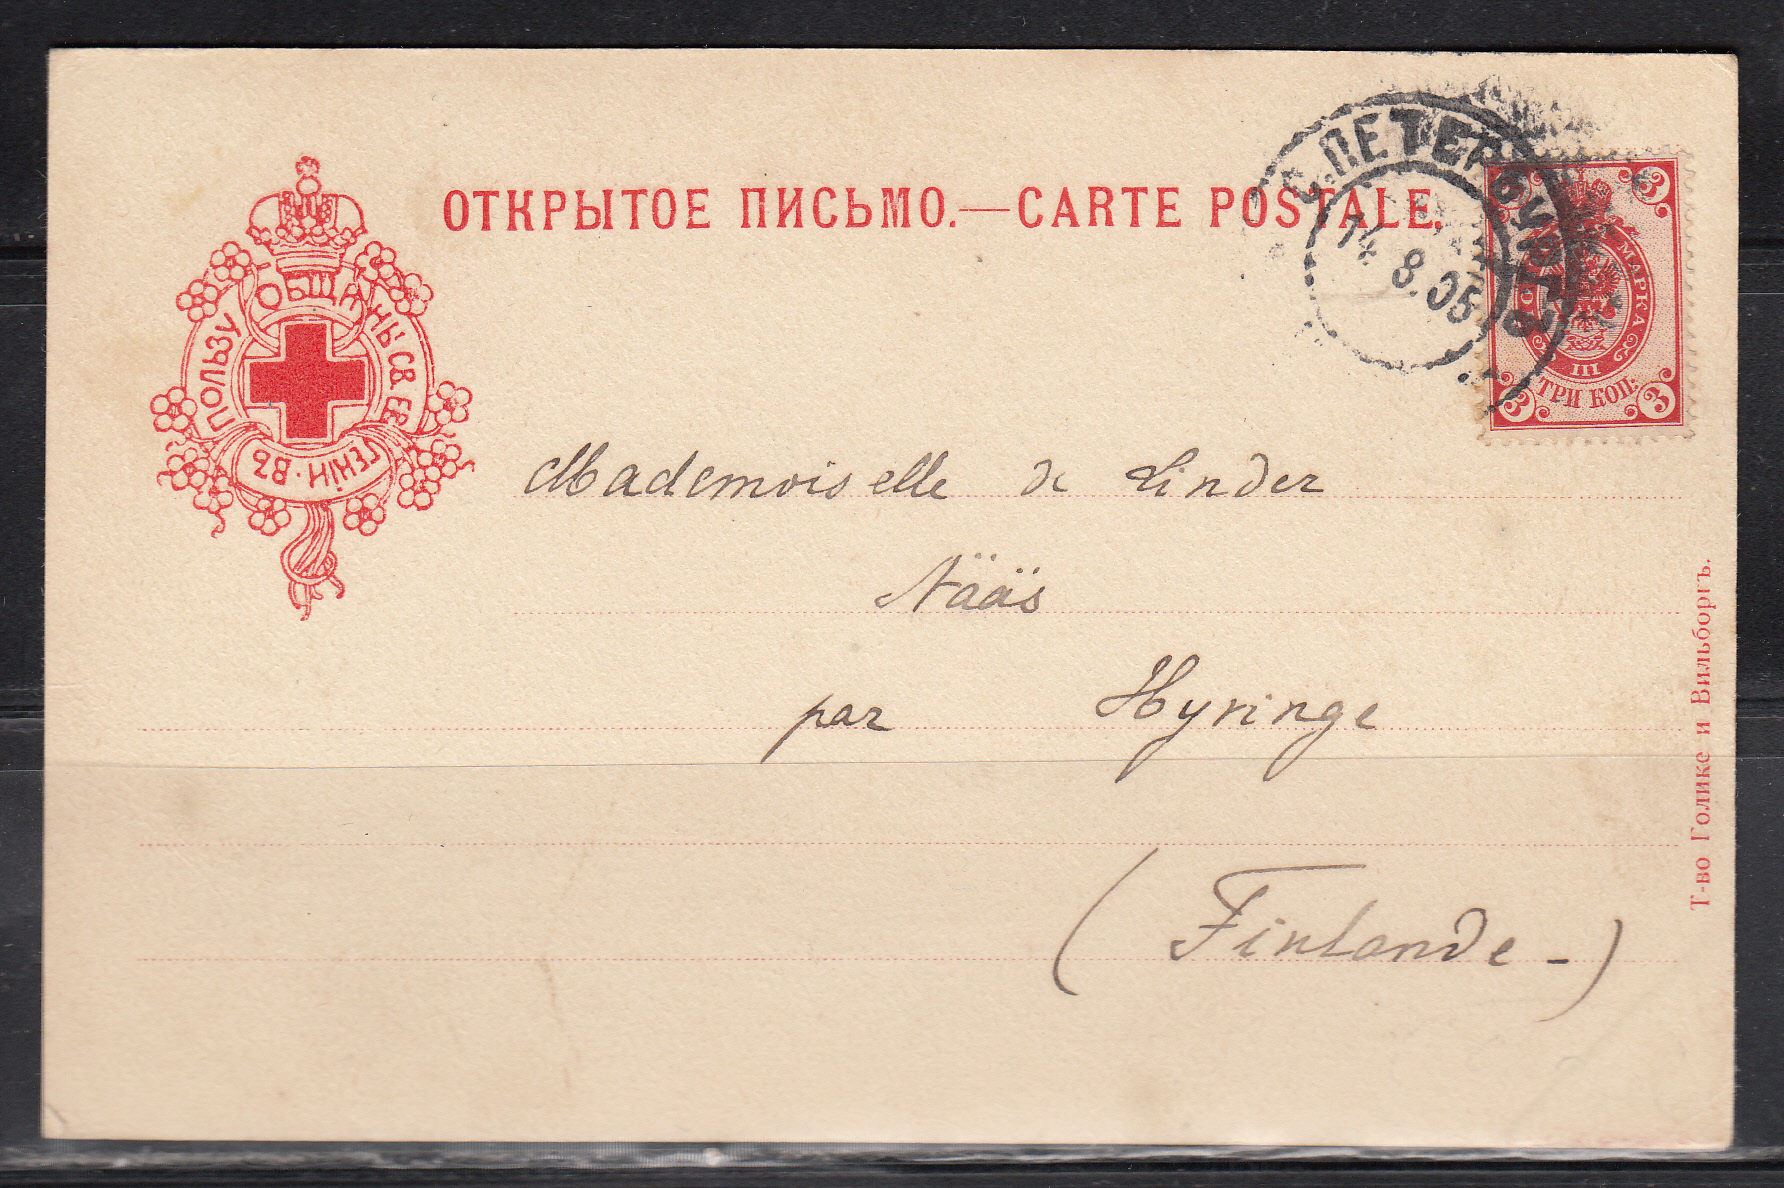 ОТКРЫТОЕ ПИСЬМО.—CARTE POSTALE.
ВЪ ПОЛЬЗУ ОБЩИНЫ СВ. ЕВГЕНІИ.
С.ПЕТЕРБУРГЪ
14 8.05
МАРКА
3
3
3
III
ТРИ КОП.
Mademoiselle de Linder
Nääs
par Hyvinge
(Finlande -)
Т-во Голике и Вильборгъ.